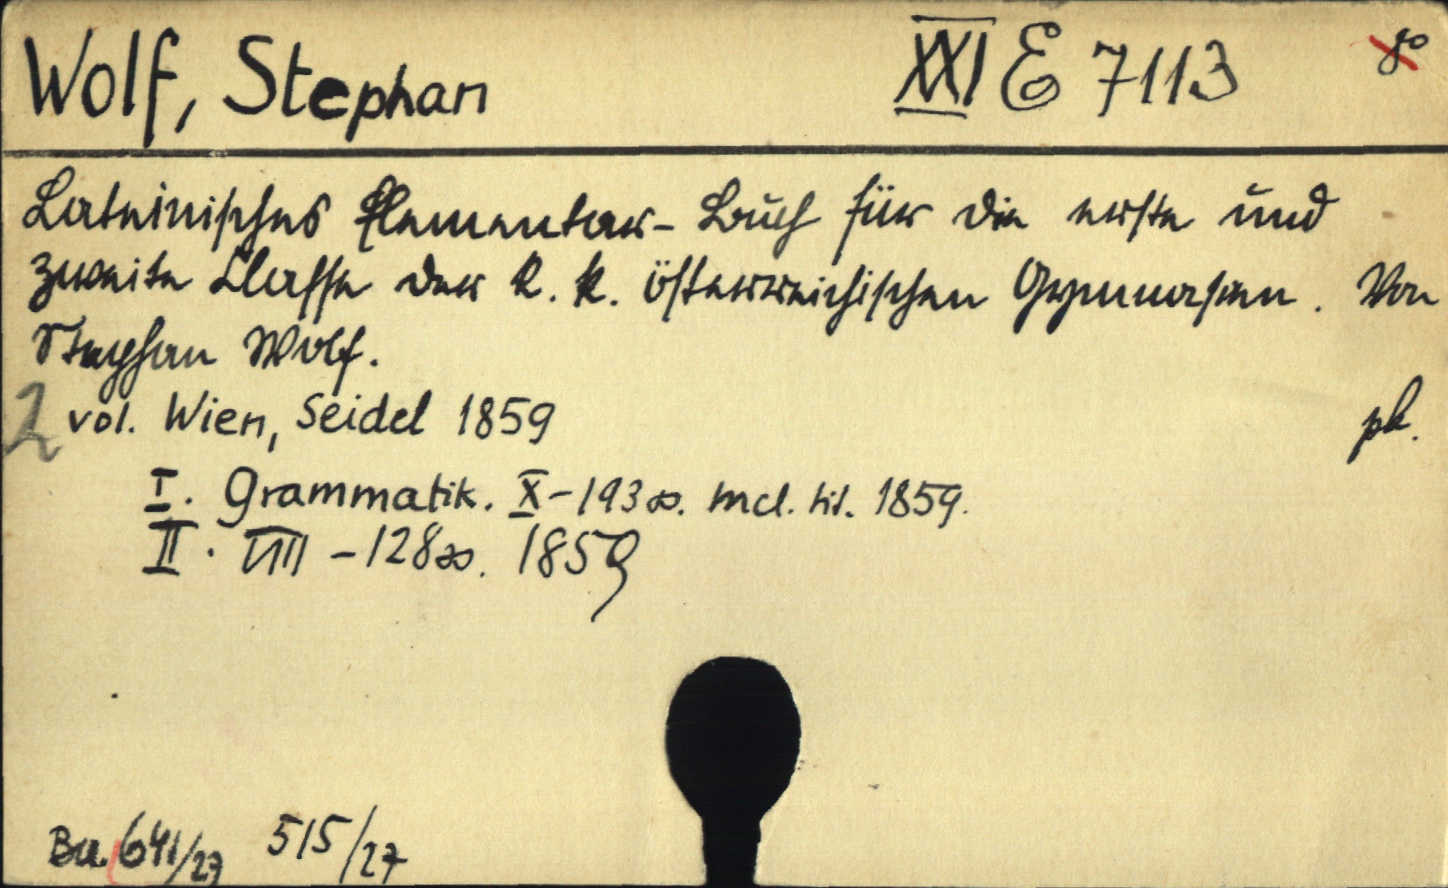 Wolf, Stephan XXI E 7113 8°
Lateinisches Elementar-Buch für die erste und
zweite Classe der k. k. österreichischen Gymnasien. Von
Stephan Wolf.
2 vol. Wien, Seidel 1859 pk.
I. Grammatik. X-193 s. incl. tit. 1859.
II. VIII-128 s. 1859
Bu. 641/27 515/27